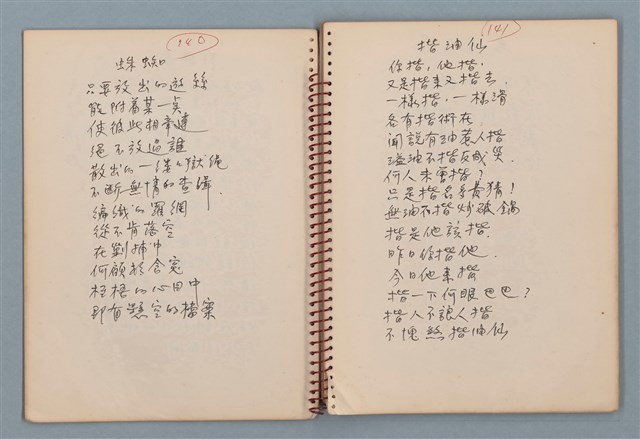 140
蜘蛛
只要放出的遊絲
能附着某一点
使彼此相牽連
絕不放過誰
散出的一縷々獄绳
不断無情的查緝
編織的羅網
從不肯落空
在劉捕中
何顧於含冤
桎梏的心田中
即有懸空的檔案
141
揩油仙
你揩，他揩，
又是揩来又揩去．
一樣揩，一樣滑
各有揩術在
聞說有油惹人揩
溢油不揩反成災．
何人未曾揩？
只是揩名手最猜！
無油不揩炒破鍋
揩是他該揩．
昨日你揩他．
今日他来揩
揩一下何眼巴巴？
揩人不讓人揩
不愧煞揩油仙